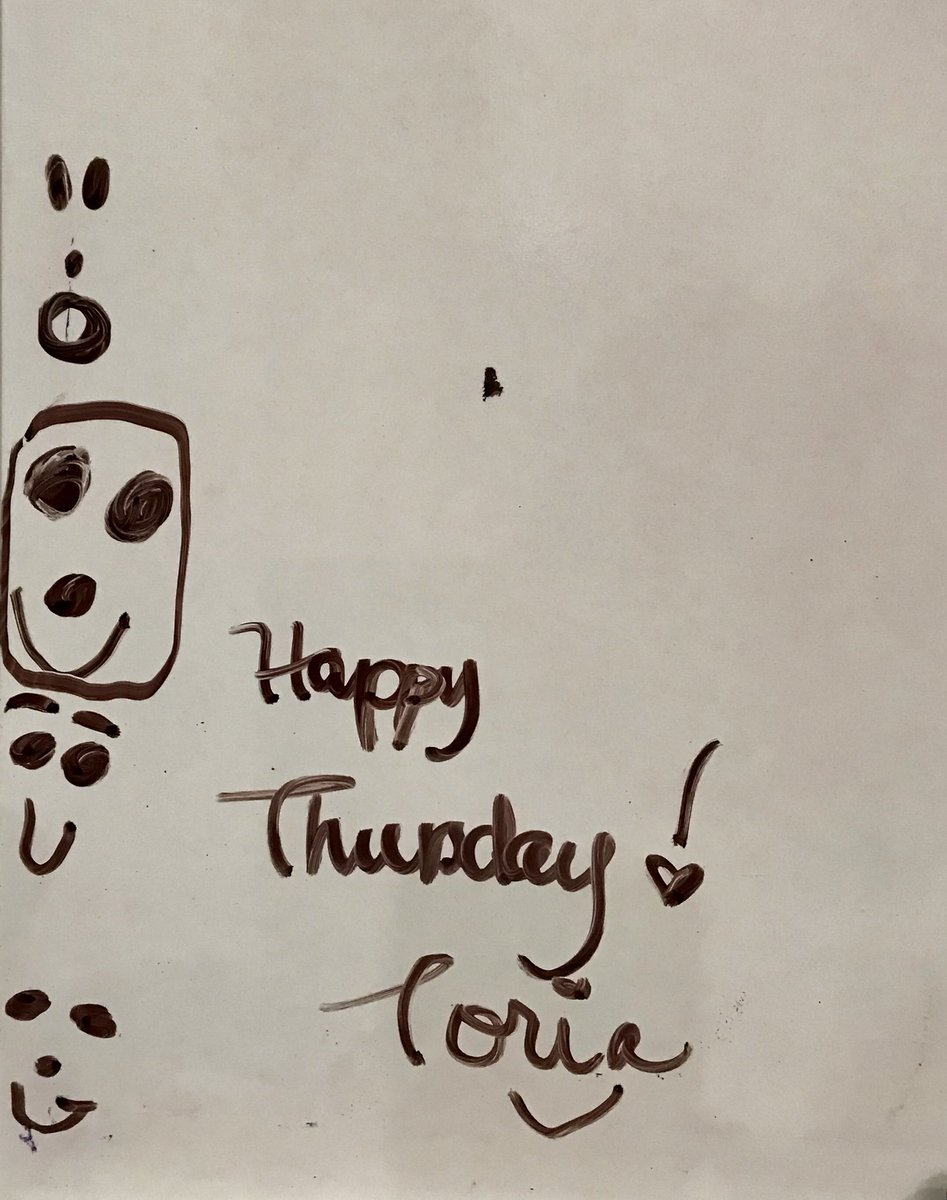 Happy
Thursday!
Toria